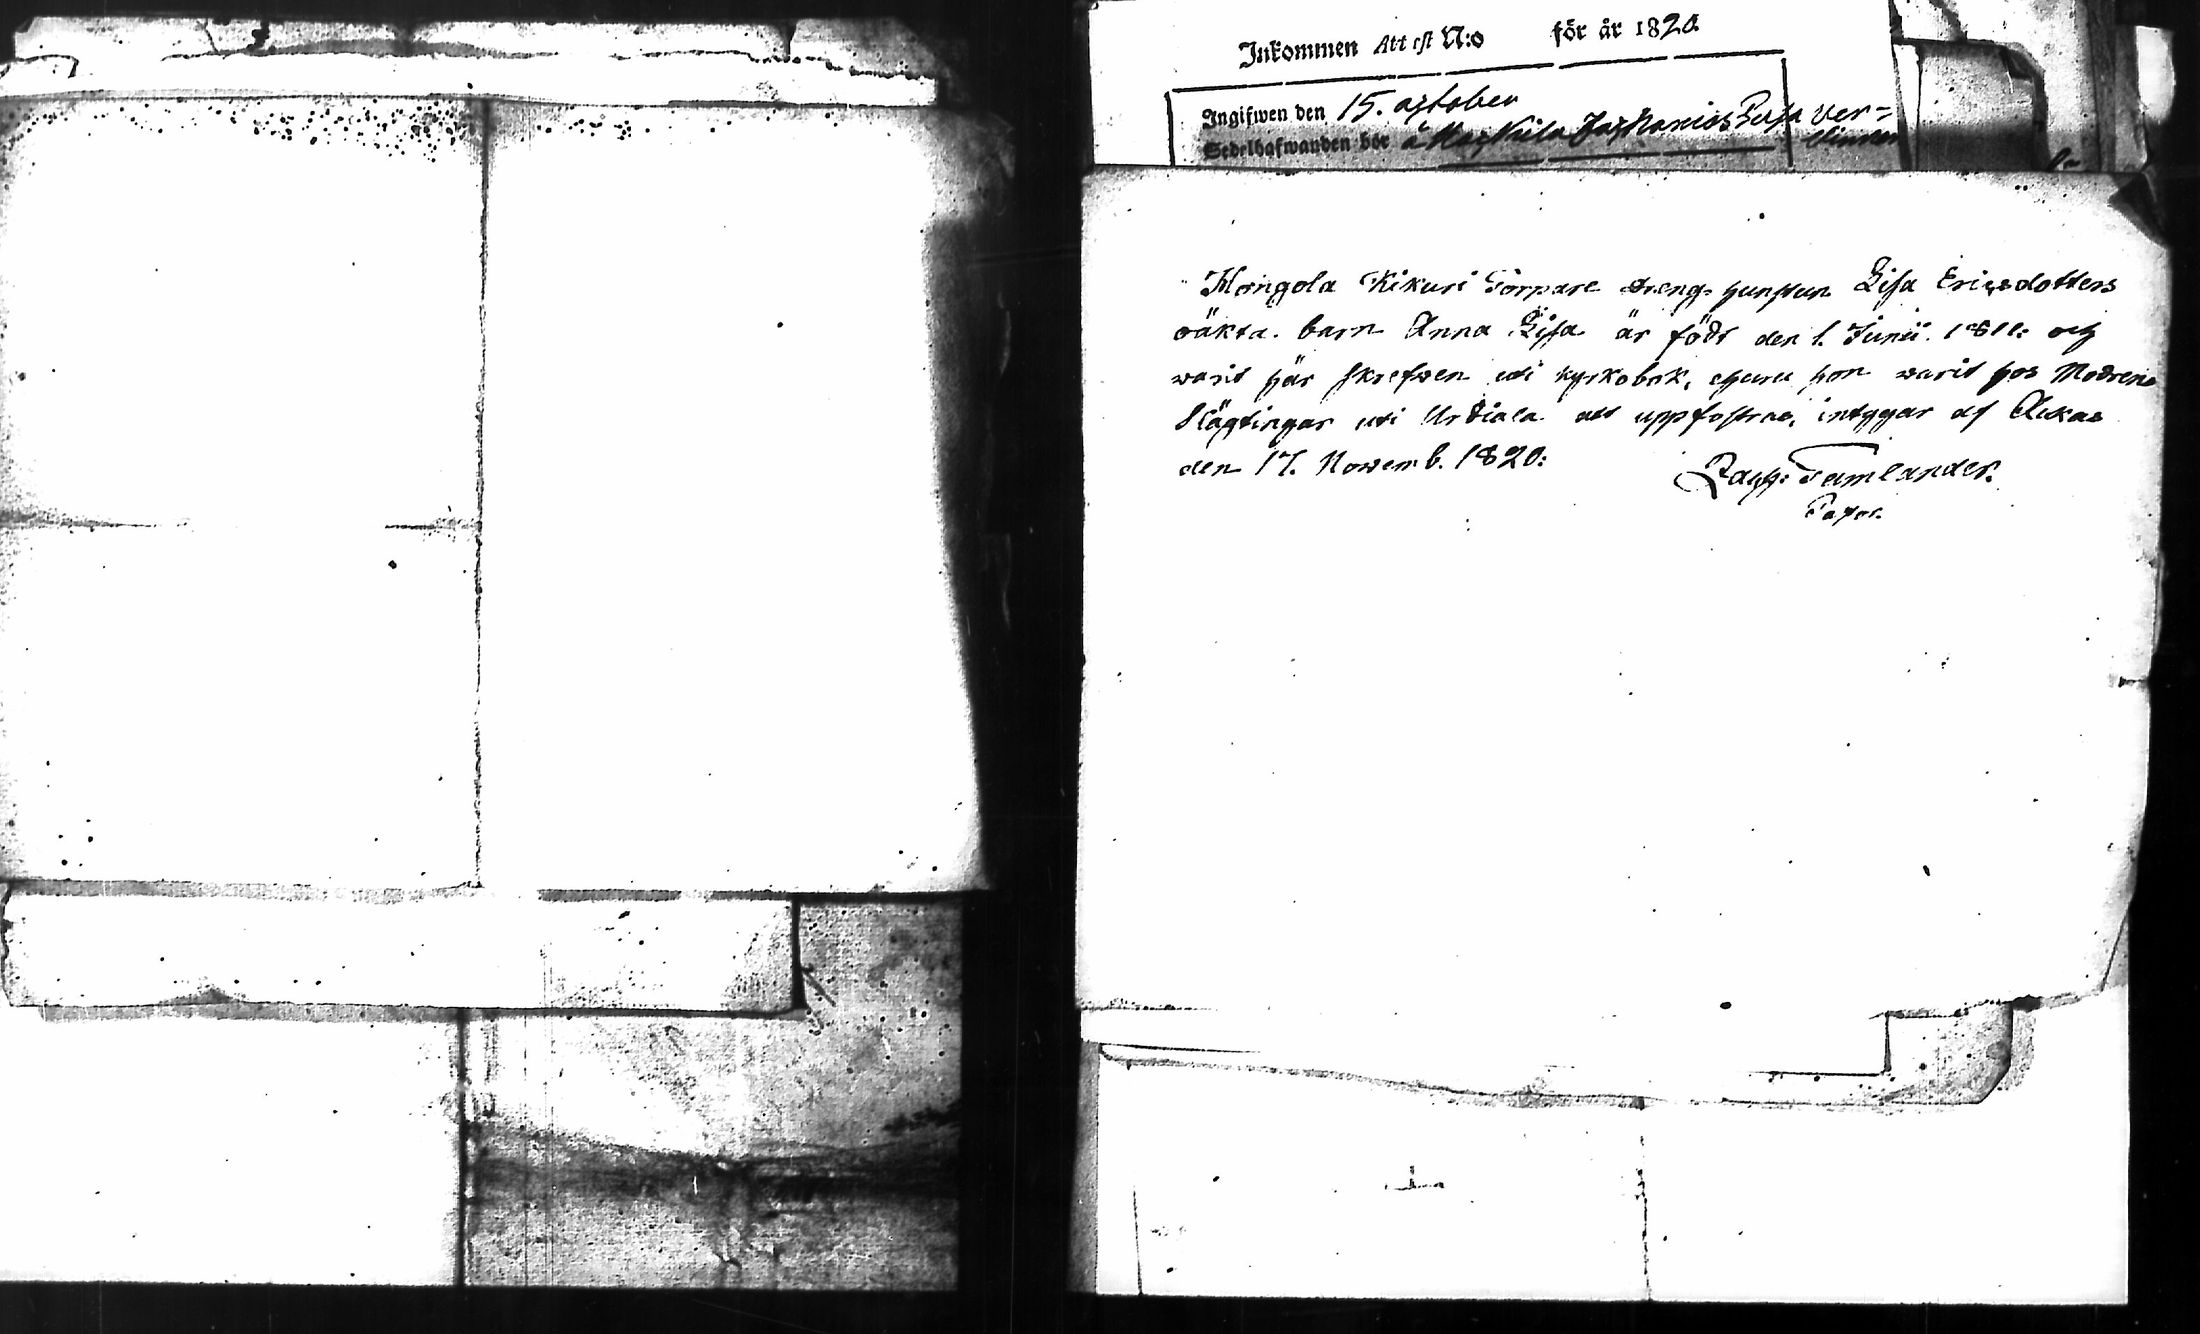 Inkommen Attest N:o för år 1820.
Ingifwen den 15. october
Sedelhafwanden bor å
Hongola Kikuri Torpare dreng hustrun Lisa Ericsdotters
oäkta. barn Anna Lisa är född den 1. Junii. 1811: och
warit här skrefwen uti kyrkobok, ehuru hon warit hos Modrens
Slägtingar uti Urdiala att uppfostras, intygar af Ackas
den 17. Novemb. 1820:
Zach: Tamlander.
Pastor.